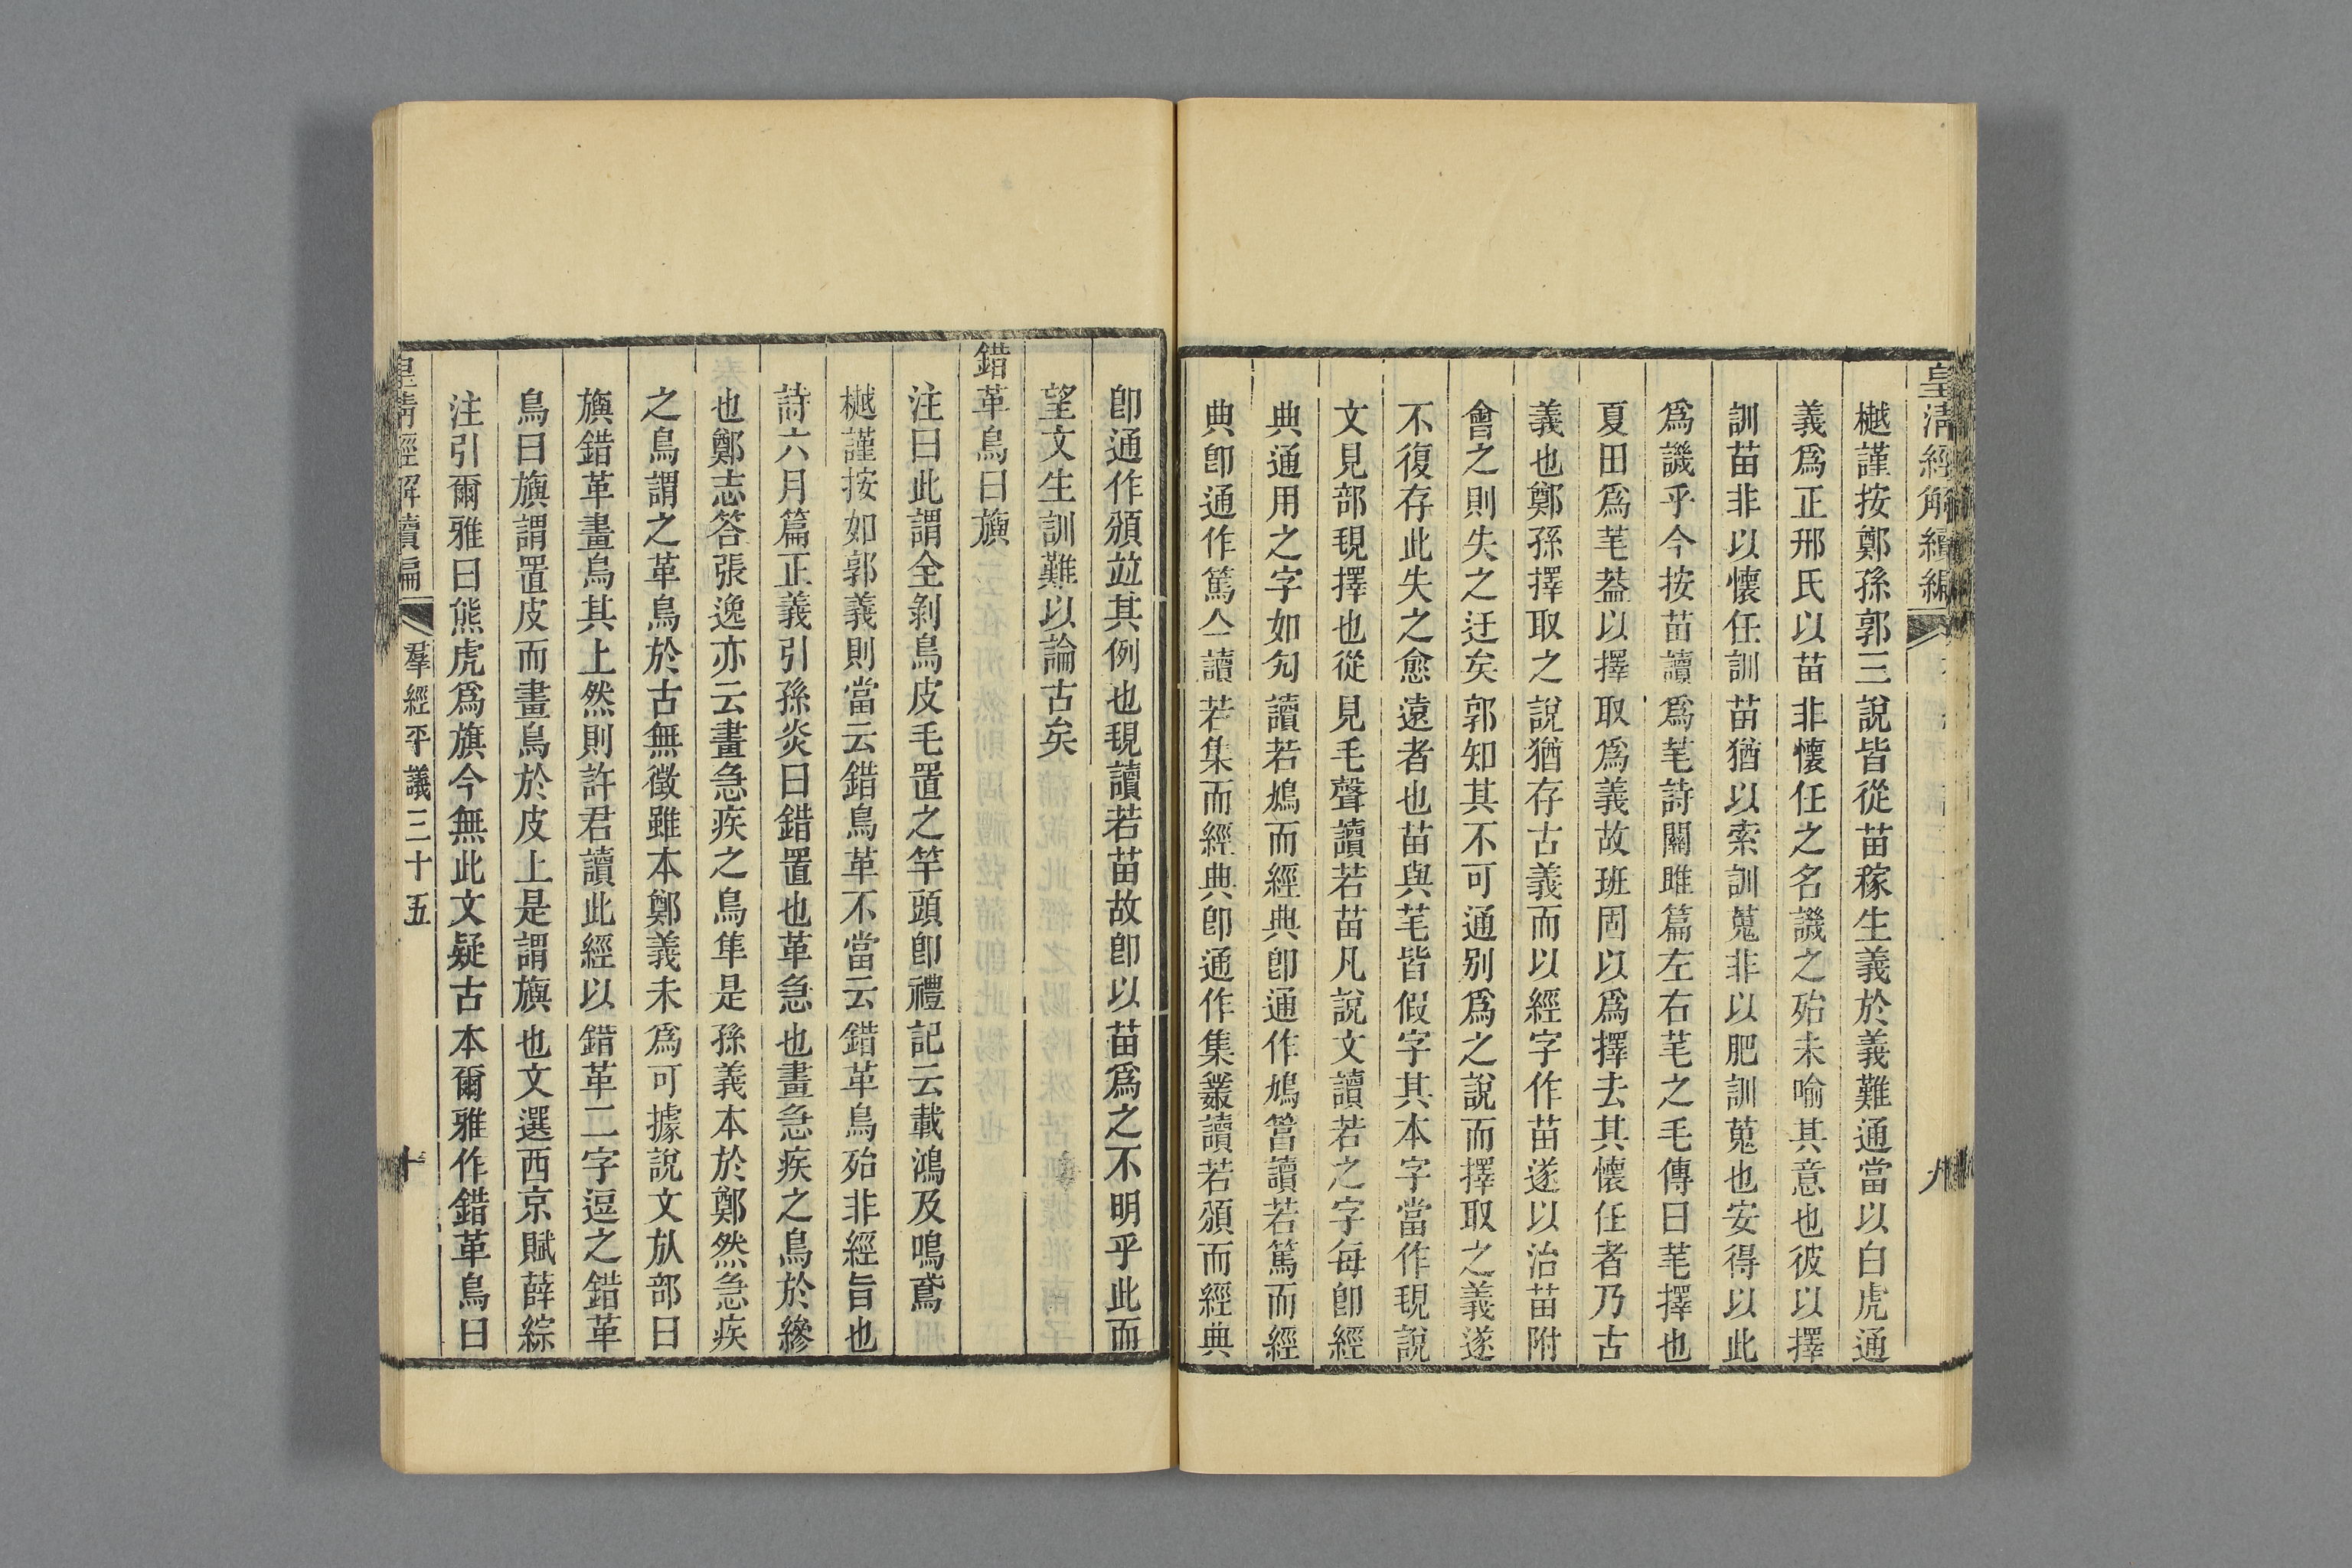 皇清經解續編
九
樾謹按鄭孫郭三說皆從苗稼生義於義難通當以白虎通
義爲正邢氏以苗非懷任之名譏之殆未喻其意也彼以擇
訓苗非以懷任訓苗猶以索訓蒐非以肥訓蒐也安得以此
爲譏乎今按苗讀爲芼詩關雎篇左右芼之毛傳曰芼擇也
夏田爲芼葢以擇取爲義故班固以爲擇去其懷任者乃古
義也鄭孫擇取之說猶存古義而以經字作苗遂以治苗附
會之則失之迂矣郭知其不可通别爲之說而擇取之義遂
不復存此失之愈遠者也苗與芼皆假字其本字當作覒說
文見部覒擇也從見毛聲讀若苗凡說文讀若之字每卽經
典通用之字如勼讀若鳩而經典卽通作鳩䈞讀若篤而經
典卽通作篤亼讀若集而經典卽通作集䉵讀若頒而經典
卽通作頒竝其例也覒讀若苗故卽以苗爲之不明乎此而
望文生訓難以論古矣
錯革鳥曰旟
注曰此謂全剝鳥皮毛置之竿頭卽禮記云載鴻及鳴鳶
樾謹按如郭義則當云錯鳥革不當云錯革鳥殆非經旨也
詩六月篇正義引孫炎曰錯置也革急也畫急疾之鳥於縿
也鄭志答張逸亦云畫急疾之鳥隼是孫義本於鄭然急疾
之鳥謂之革鳥於古無徵雖本鄭義未爲可據說文㫃部曰
旟錯革畫鳥其上然則許君讀此經以錯革二字逗之錯革
鳥曰旟謂置皮而畫鳥於皮上是謂旟也文選西京賦薛綜
注引爾雅曰熊虎爲旗今無此文疑古本爾雅作錯革鳥曰
皇清經解續編
羣經平議三十五
十